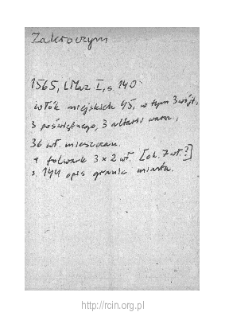 Zakroczym
1565, LMaz I, s 140
włók miejskich 45, w tym 3 wójt,
3 poświętnego, 3 altarii
36 wł mieszczan.
+ folwark 3 x 2 wł. [ok. 7 wł?]
s 144 opis granic miasta.
http://rcin.org.pl